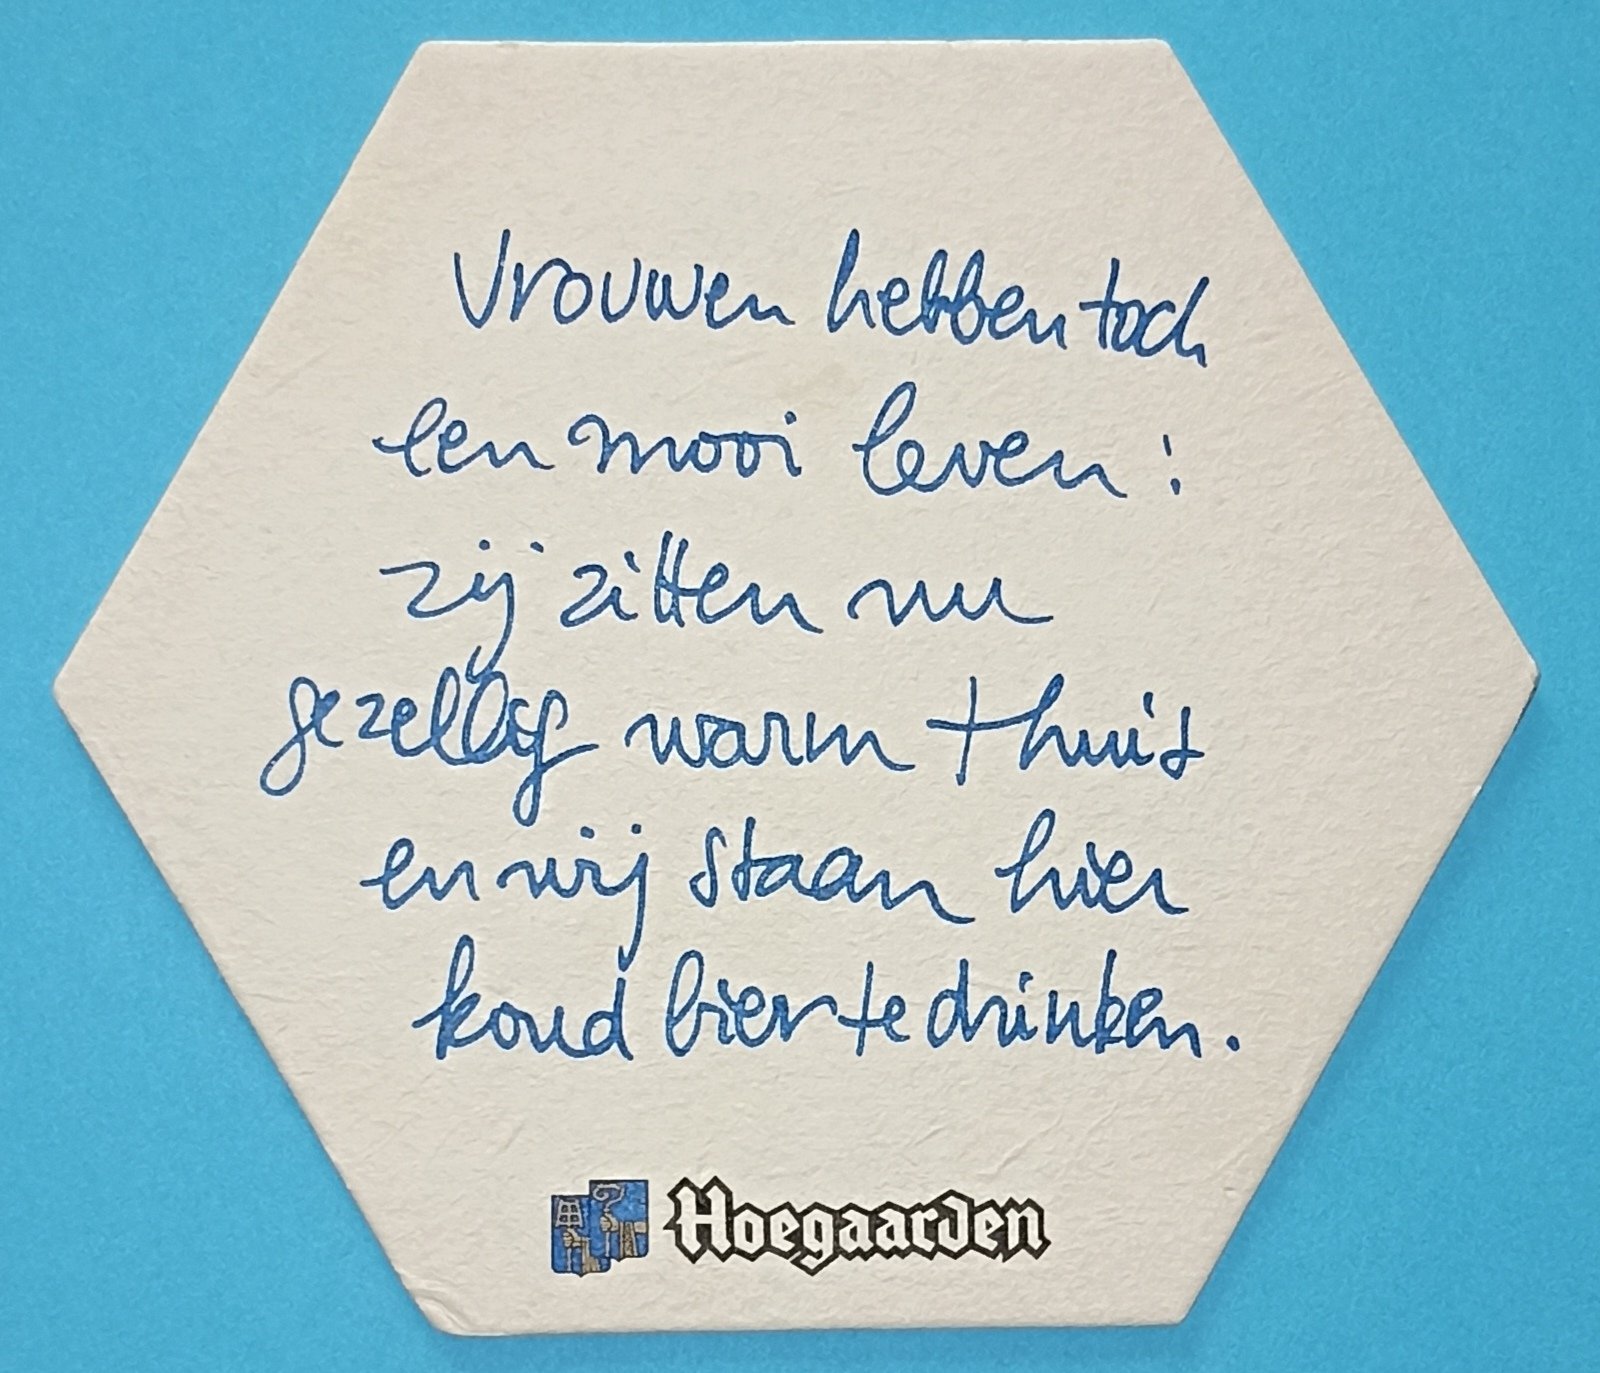 Vrouwen hebben toch
een mooi leven:
zij zitten nu
gezellig warm thuis
en wij staan hier
koud bier te drinken.
Hoegaarden